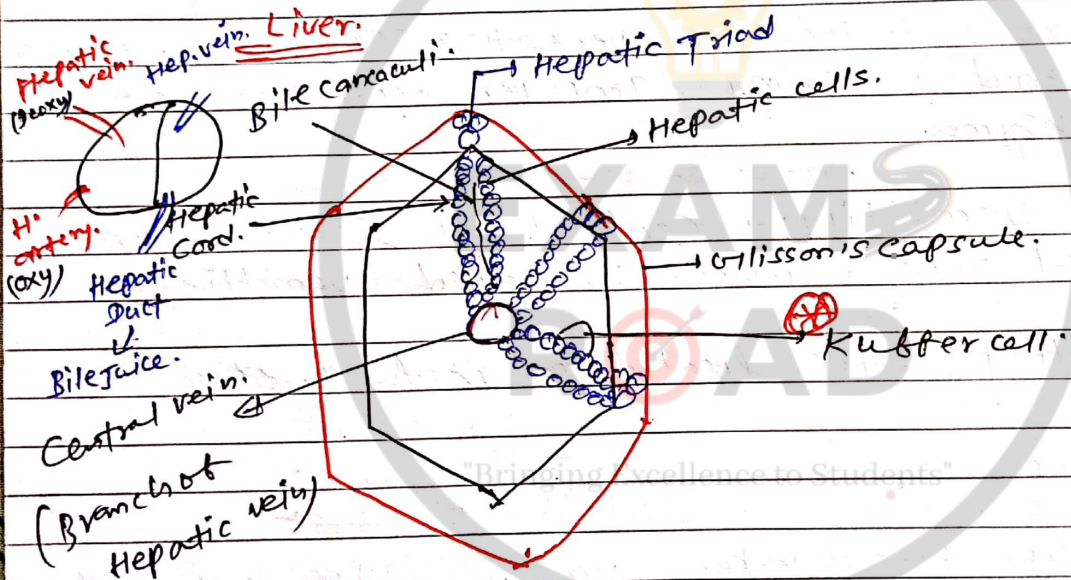 Liver.
Hepatic
vein.
(Deoxy)
Hep. vein.
Bile canaculi.
Hepatic Triad
Hepatic cells.
Hepatic
Cord.
H.
artery.
(oxy)
Hepatic
Duct
↓
Bile Juice.
Glisson's capsule.
Kuffer cell.
Central vein.
(Branch of
Hepatic vein)
EXAM
ROAD
"Bringing Excellence to Students"